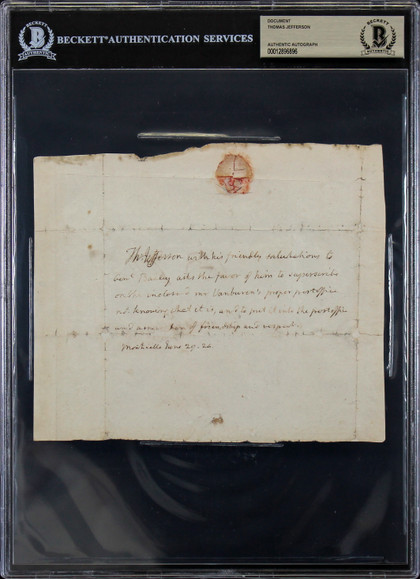 BECKETT
B
AUTHENTICATION
BECKETT® AUTHENTICATION SERVICES
DOCUMENT
THOMAS JEFFERSON
AUTHENTIC AUTOGRAPH
00012895896
BECKETT
B
AUTHENTIC
Th: Jefferson with his friendly salutations to
Genl. Bailey asks the favor of him to superscribe
on the inclosed mr Vanburen's proper post office
not knowing what it is, and to put it into the post office
and assures him of friendship and respect
Monticello June 29. 24.